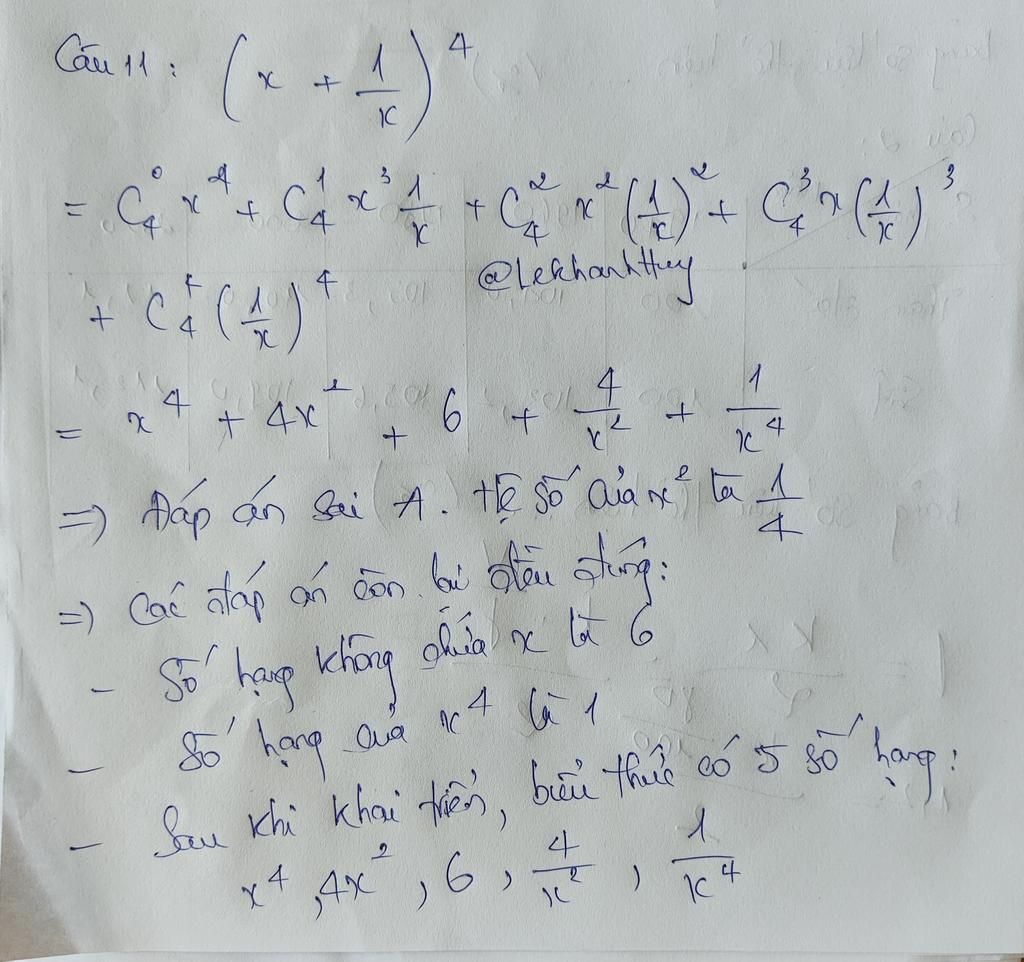 Câu 11: (x + 1/x)^4
= C_4^0 x^4 + C_4^1 x^3 1/x + C_4^2 x^2 (1/x)^2 + C_4^3 x (1/x)^3
@Lekhanhthuy
+ C_4^4 (1/x)^4
= x^4 + 4x^2 + 6 + 4/x^2 + 1/x^4
=) Đáp án sai A. Hệ số của x^2 là 1/4
=) Các đáp án còn lại đều đúng:
- Số hạng không chứa x là 6
- Số hạng của x^4 là 1
- Sau khi khai triển, biểu thức có 5 số hạng:
x^4, 4x^2, 6, 4/x^2, 1/x^4